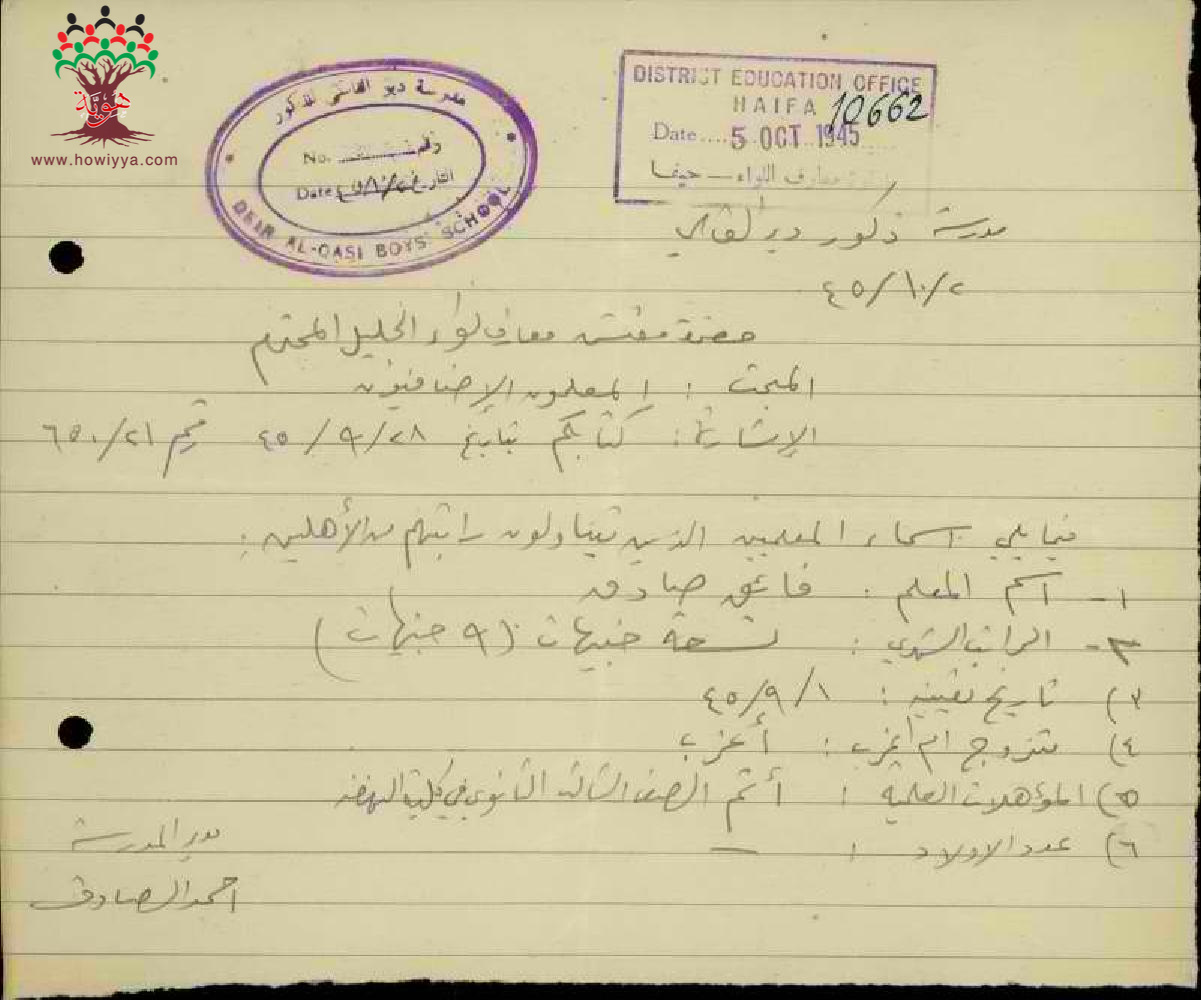 هوية
www.howiyya.com
مدرسة دير القاسي للذكور
No. رقم
Date ٤٥/١٠/٢ التاريخ
DEIR AL-QASI BOYS' SCHOOL
DISTRICT EDUCATION OFFICE
HAIFA
10662
Date.... 5 OCT 1945
معارف اللواء — حيفا
مدرسة ذكور دير القاسي
٤٥/١٠/٢
حضرة مفتش معارف لواء الجليل المحترم
المبحث : المعلمون الإضافيون
الإشارة : كتابكم بتاريخ ٤٥/٩/٢٨ رقم ٦٥٠/٢١
فيما يلي اسماء المعلمين الذين يتناولون راتبهم من الأهلين :
١- اسم المعلم : فائق صادق
٢- الراتب الشهري : تسعة جنيهات (٩ جنيهات)
٣) تاريخ تعيينه : ٤٥/٩/١
٤) متزوج ام أعزب : أعزب
٥) المؤهلات العلمية : أتم الصف الثالث الثانوي في كلية النهضة
٦) عدد الاولاد : —
مدير المدرسة
احمد الصادق